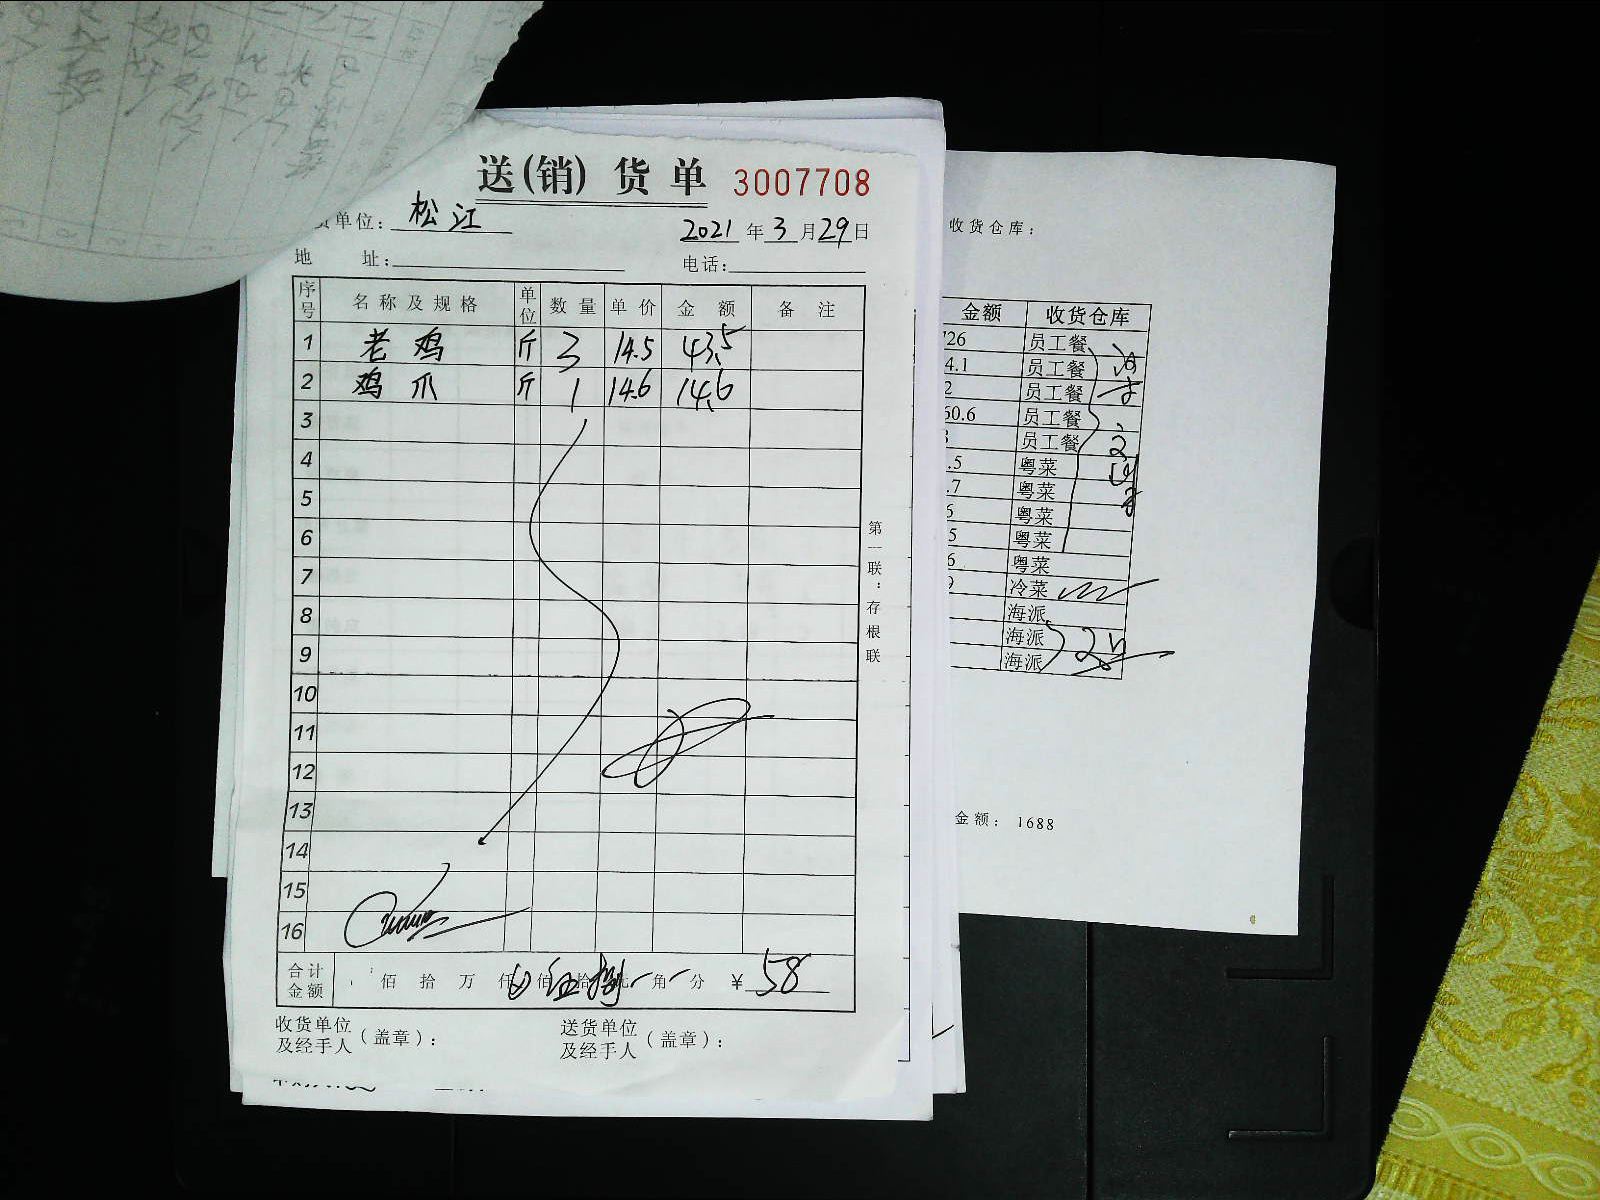 送(销)货单 3007708
货单位: 松江 2021年3月29日
地 址: 电话:
序号 名称及规格 单位 数量 单价 金额 备注
1 老鸡 斤 3 14.5 43.5
2 鸡爪 斤 1 14.6 14.6
3
4
5
6
7
8
9
10
11
12
13
14
15
16
合计金额 佰 拾 万 仟 佰 伍拾捌元 角 分 ¥ 58
收货单位及经手人(盖章): 送货单位及经手人(盖章):
第一联:存根联
收货仓库:
金额 收货仓库
726 员工餐
4.1 员工餐
2 员工餐
60.6 员工餐
员工餐
.5 粤菜
.7 粤菜
粤菜
5 粤菜
6 粤菜
9 冷菜
海派
海派
海派
金额: 1688